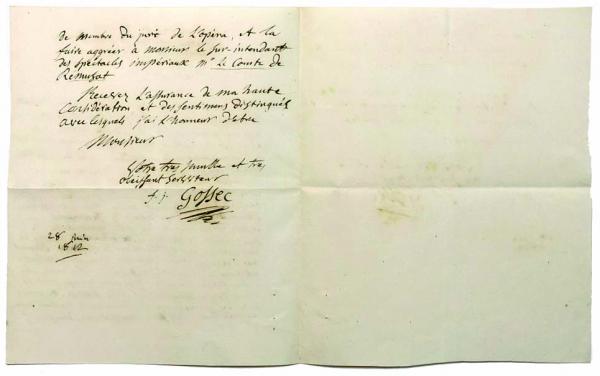 de membre du juré de L'opéra, et la
faire aggréer à monsieur le sur-intendant
des spectacles impériaux mr Le Comte de
Remusat
Recevez L'assurance de ma haute
Considération et des sentimens distingués
avec lesquels j'ai L'honneur d'etre
Monsieur
Votre tres humble et tres
obeissant serviteur
f. j. Gossec
28 juin
1812